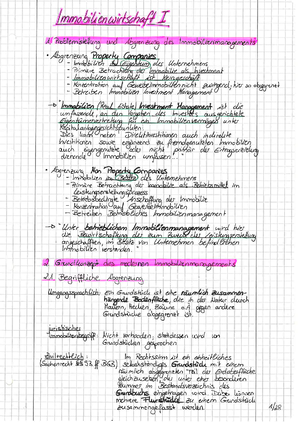 Immobilienwirtschaft I
1. Problemstellung und Abgrenzung des Immobilienmanagements
• Abgrenzung Property Companies
- Immobilien als des Unternehmens
- Primäre Betrachtung der Immobilie als Investment
- Immobilienwirtschaft ist Kerngeschäft
- Konzentration auf Gewerbeimmobilien nicht zwingend, hier so abgegrenzt
- betreiben Immobilien Investment Management
→ "Immobilien (Real Estate) Investment Management ist die
umfassende, an den Vorgaben des Investors ausgerichtete
Eigentümervertretung für ein Immobilienvermögen unter
Kapitalanlagegesichtspunkten.
Dies kann neben Direktinvestitionen auch indirekte
Investitionen sowie ergänzend zu fremdgenutzten Immobilien
auch eigengenutzte oder nicht primär der Ertragserzielung
dienende Immobilien umfassen."
• Abgrenzung Non Property Companies
- Immobilien des Unternehmens
- Primäre Betrachtung der Immobilie als Betriebsmittel im
Leistungserstellungsprozess
- Betriebsbedingte Anschaffung der Immobilie
- Konzentration auf Gewerbeimmobilien
- betreiben Betriebliches Immobilienmanagement
→ "Unter betrieblichem Immobilienmanagement wird hier
die Bewirtschaftung der zum Zweck der Leistungserstellung
angeschafften, im Besitz von Unternehmen befindlichen
Immobilien verstanden."
2. Grundkonzept des modernen Immobilienmanagements
2.1. Begriffliche Abgrenzung
Umgangssprachlich: ein Grundstück ist eine räumlich zusammen-
hängende Bodenfläche, die in der Natur durch
Mauern, Hecken, Zäune o.ä. gegen andere
Grundstücke abgegrenzt ist.
juristischer
Immobilienbegriff: Nicht vorhanden, stattdessen wird von
Grundstücken gesprochen
Zivilrechtlich: Im Rechtssinne ist ein
(Sachenrecht BGB) selbstständiges Grundstück mit einem
räumlich abgegrenzten Teil der Erdoberfläche
gleichzusetzen, der unter einer besonderen
Nummer im Bestandsverzeichnis des
Grundbuchs eingetragen wird. Dabei können
mehrere "Flurstücke" zu einem Grundstück
zusammengefasst werden.